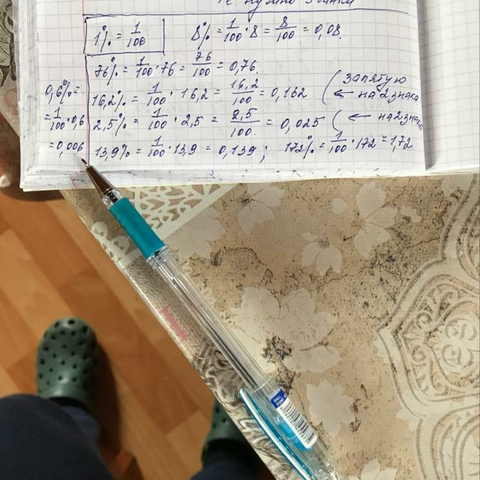 не нужно
1% = 1/100   8% = 1/100 · 8 = 8/100 = 0,08.
76% = 1/100 · 76 = 76/100 = 0,76
0,6% = 1/100 · 0,6 = 0,006
16,2% = 1/100 · 16,2 = 16,2/100 = 0,162
запятую ← на 2 знака
2,5% = 1/100 · 2,5 = 2,5/100. = 0,025 ← на 2 знака
13,9% = 1/100 · 13,9 = 0,139; 172% = 1/100 · 172 = 1,72